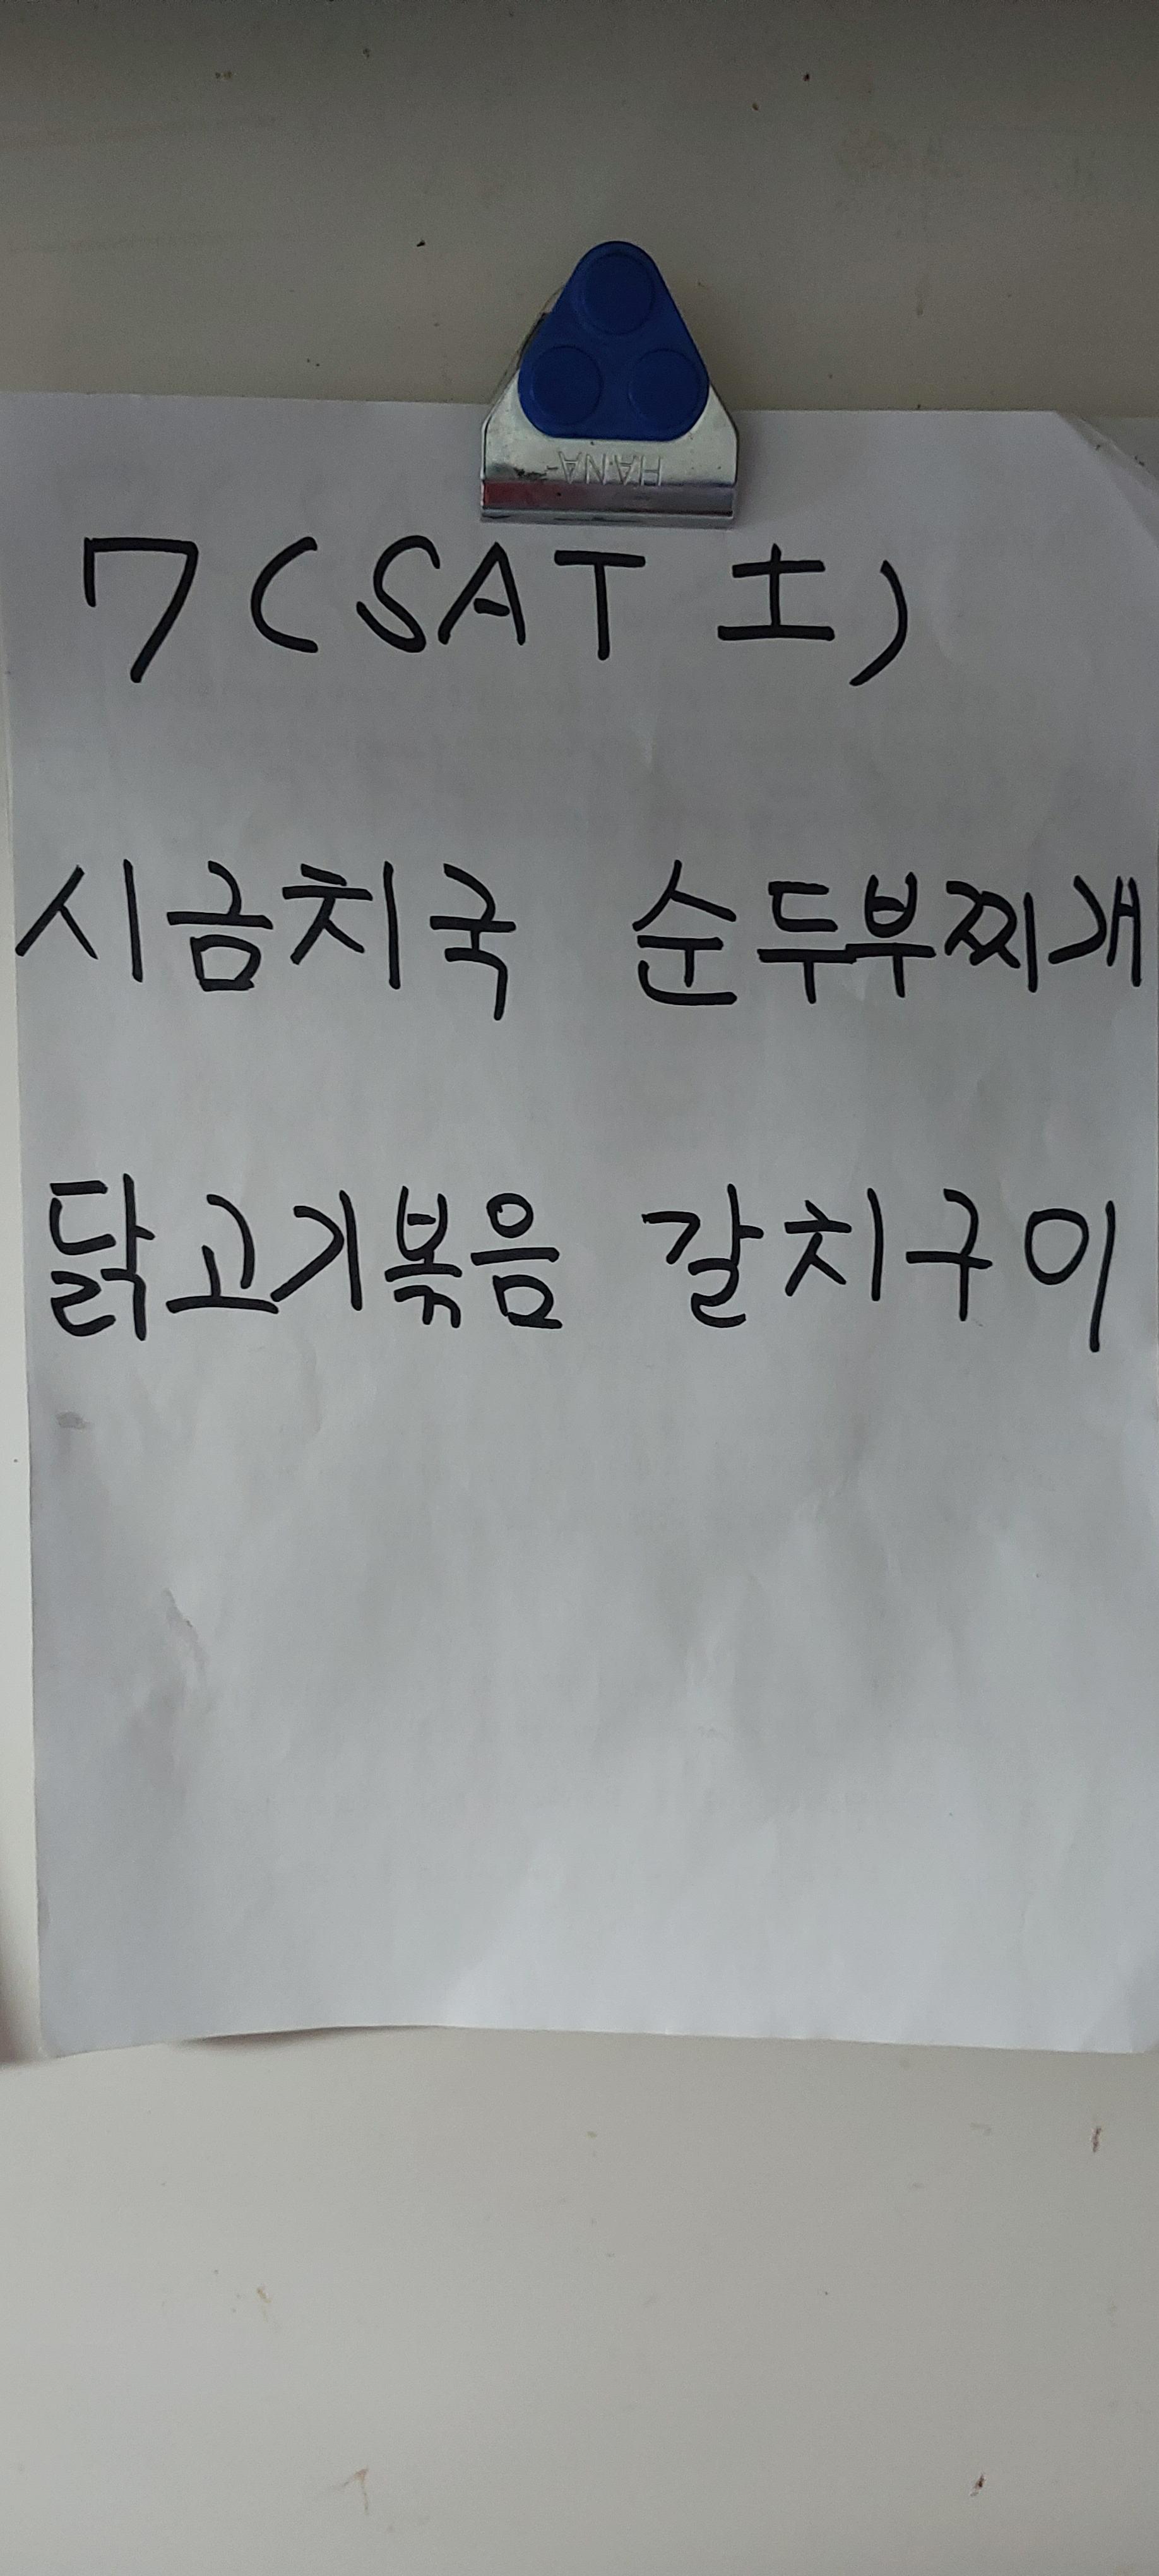 HANA
7 (SAT 土)
시금치국 순두부찌개
닭고기볶음 갈치구이